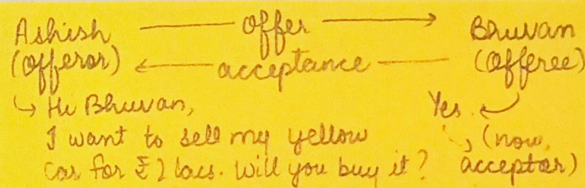 Ashish offer Bhuvan
(offeror) acceptance (offeree)
↳ Hi Bhuvan, Yes.
I want to sell my yellow (now
car for ₹ 2 lacs. Will you buy it? acceptor)